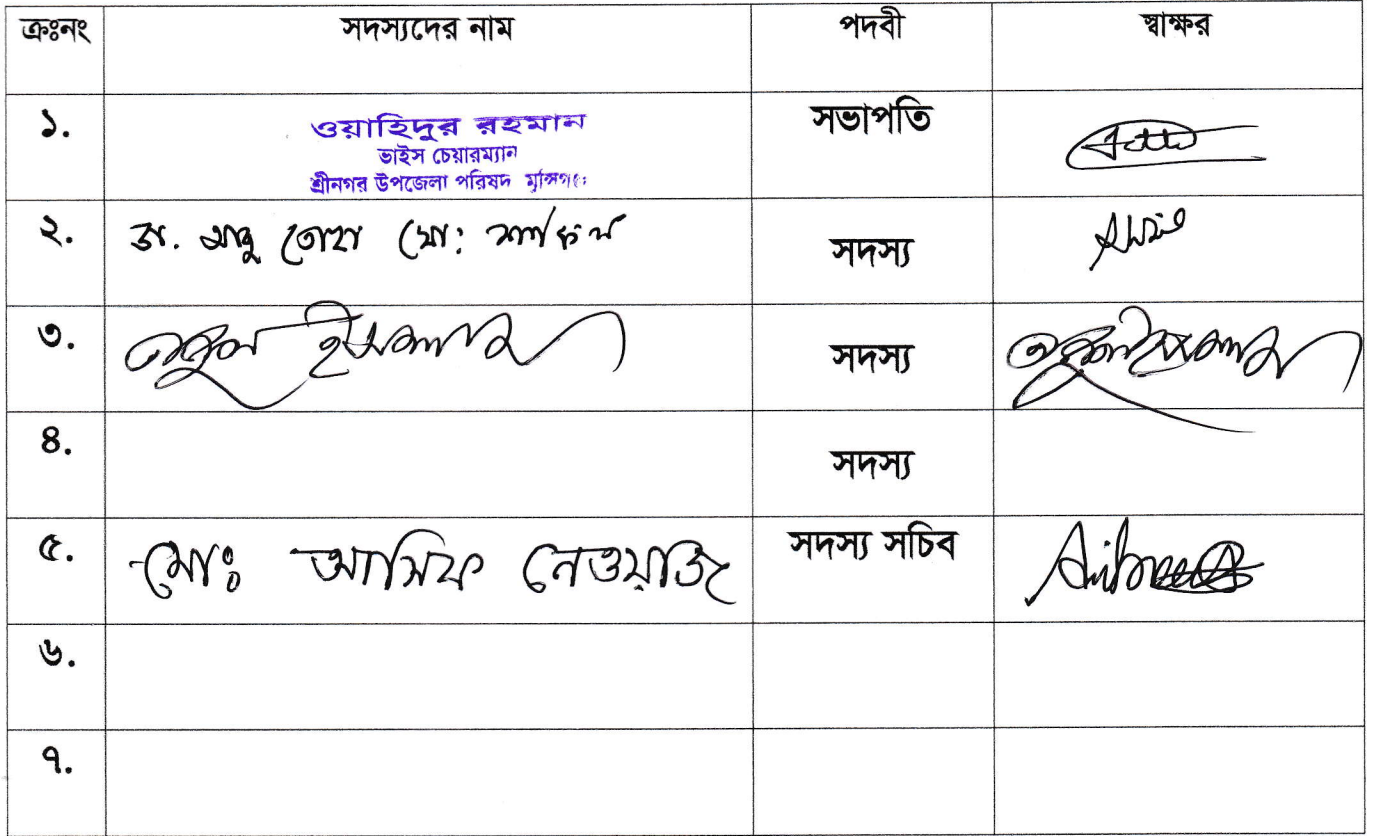 ক্রঃনং সদস্যদের নাম পদবী স্বাক্ষর
১. ওয়াহিদুর রহমান সভাপতি
ভাইস চেয়ারম্যান
শ্রীনগর উপজেলা পরিষদ মুন্সিগঞ্জ
২. ডা. আবু তোহা মো: সদস্য
৩. ইসলাম সদস্য
৪. সদস্য
৫. মোঃ আসিফ নেওয়াজ সদস্য সচিব
৬.
৭.